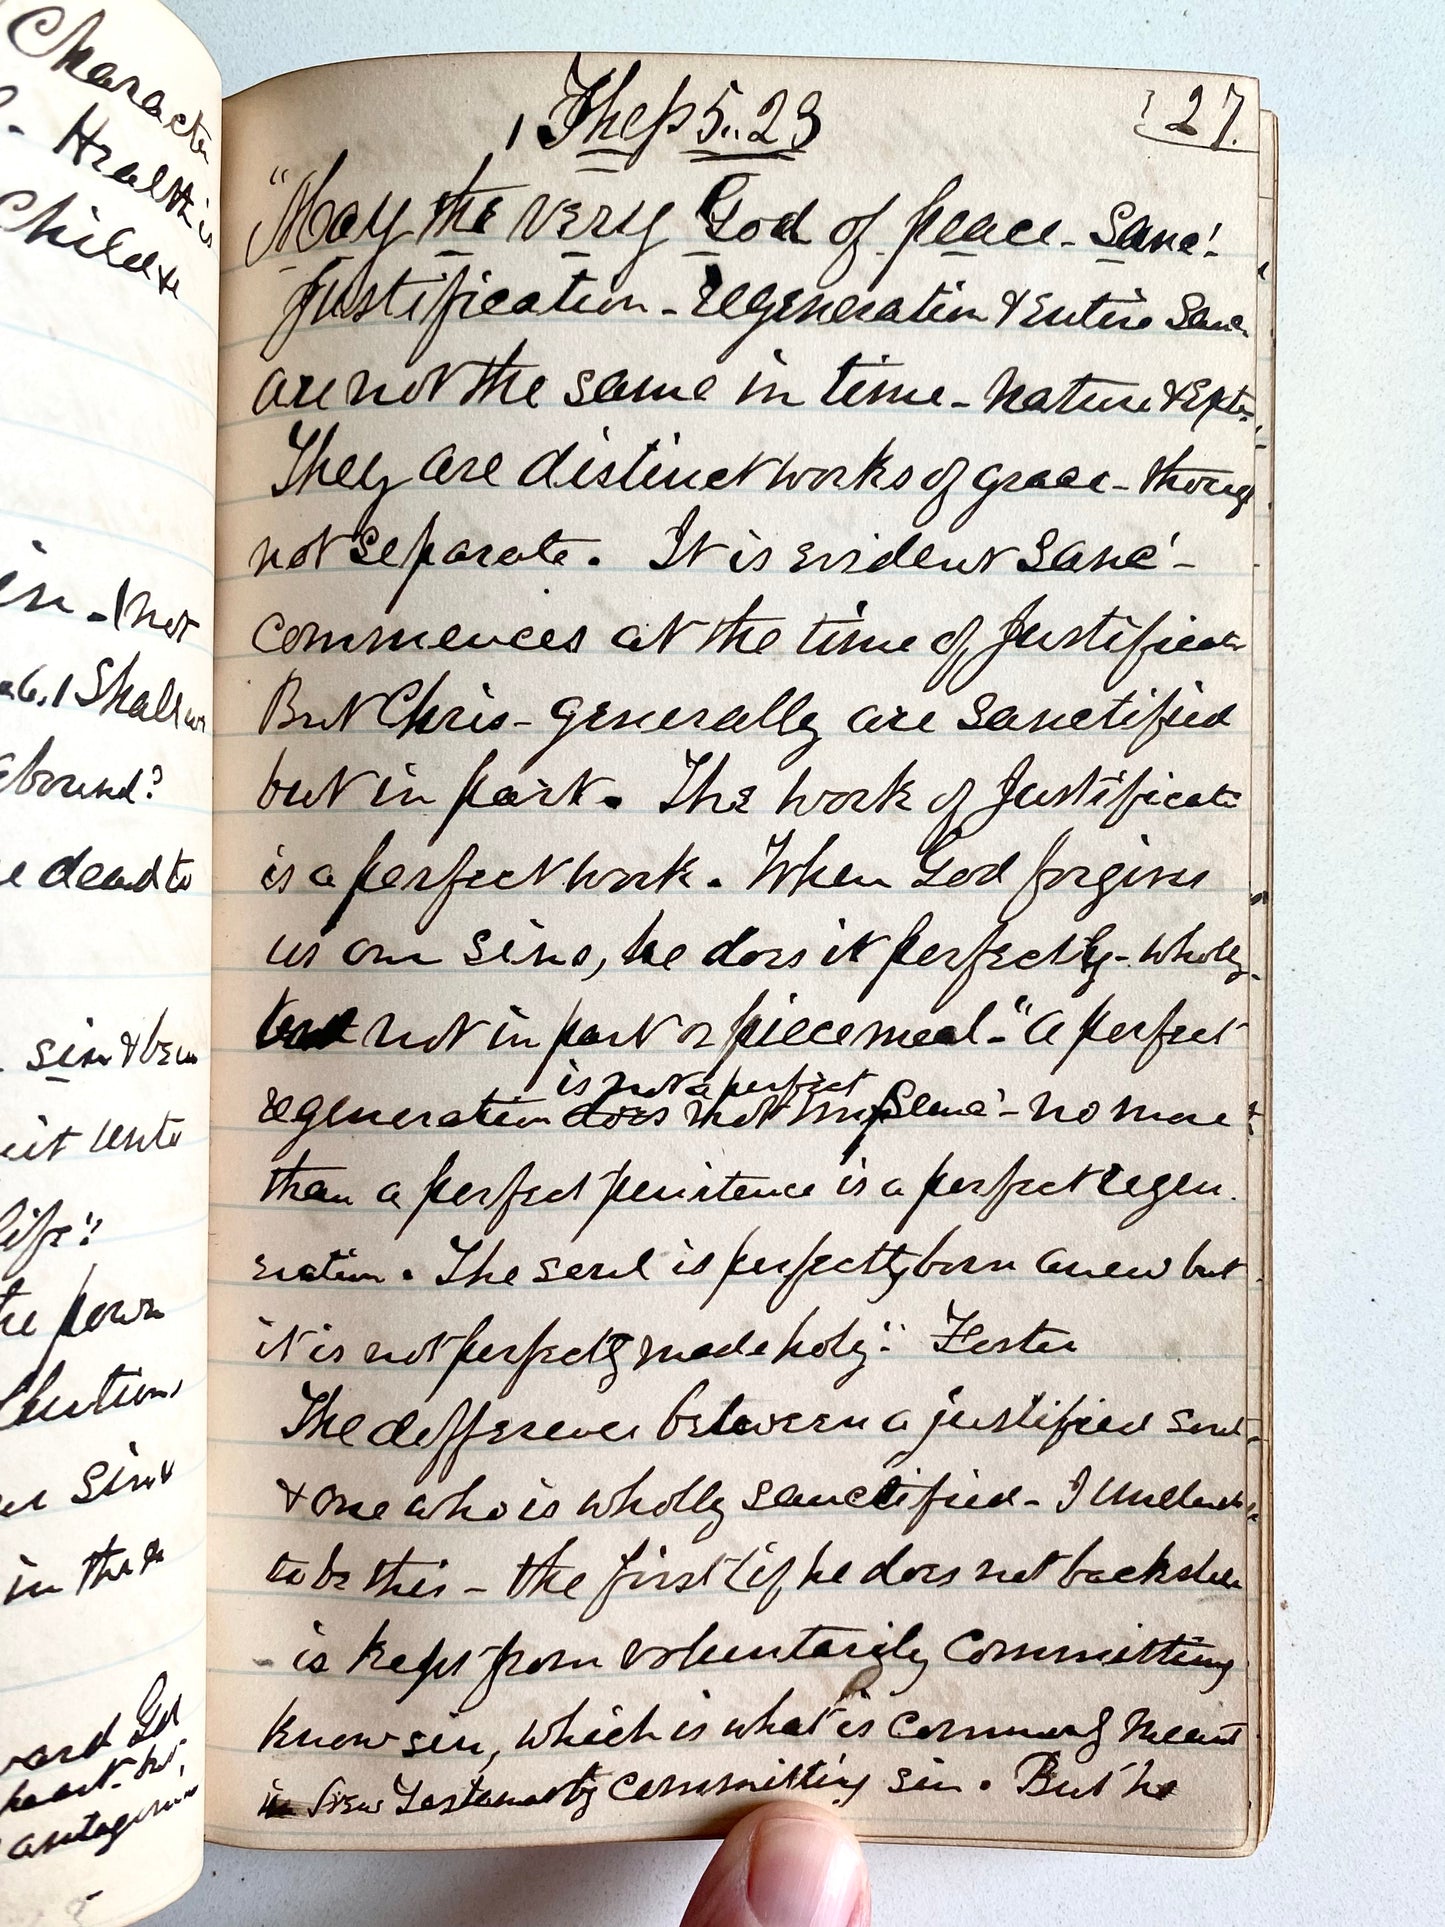 Character
Health is
Child
in - I not
I Shall
abound?
dead to
sin &
unto
life"
the
sin &
in the
antagonism
27.
1 Thess 5..23
"May the very God of peace - Sanc'-
Justification - regeneration & Entire Sanc
are not the same in time - nature & Expe
They are distinct works of grace - though
not separate. It is evident Sanc'-
commences at the time of Justificat
But Chris - generally are sanctified
but in part. The work of Justificati
is a perfect work. When God forgives
us our sins, he does it perfectly - wholly
but not in part or piecemeal - "a perfect
is not a perfect
regeneration does not imp Sanc' - no more
than a perfect penitence is a perfect regen-
eration. The soul is perfectly born anew but
it is not perfectly made holy". Foster
The difference between a justified soul
& one who is wholly sanctified - I understand
to be this - the first (if he does not backslide
is kept from voluntarily committing
know sin, which is what is commonly meant
in New Testament by committing sin. But he